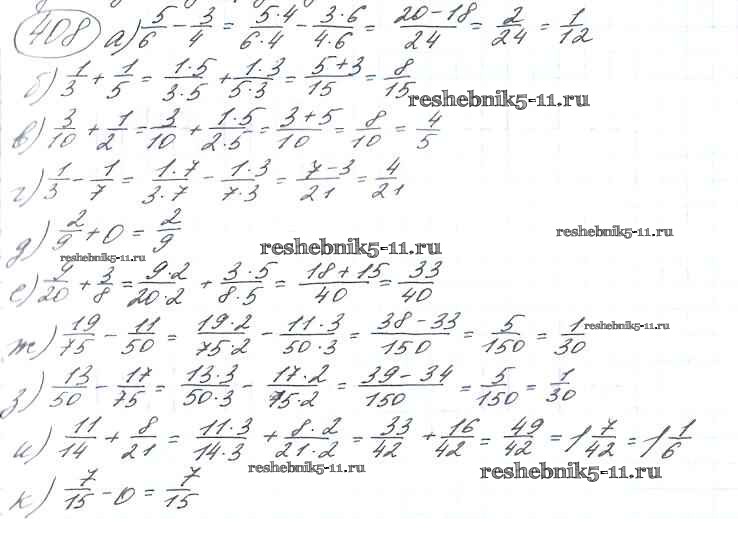 408 а) 5/6 − 3/4 = 5·4/6·4 − 3·6/4·6 = 20−18/24 = 2/24 = 1/12
б) 1/3 + 1/5 = 1·5/3·5 + 1·3/5·3 = 5+3/15 = 8/15
reshebnik5-11.ru
в) 3/10 + 1/2 = 3/10 + 1·5/2·5 = 3+5/10 = 8/10 = 4/5
г) 1/3 − 1/7 = 1·7/3·7 − 1·3/7·3 = 7−3/21 = 4/21
д) 2/9 + 0 = 2/9
reshebnik5-11.ru
reshebnik5-11.ru
reshebnik5-11.ru
е) 9/20 + 3/8 = 9·2/20·2 + 3·5/8·5 = 18+15/40 = 33/40
ж) 19/75 − 11/50 = 19·2/75·2 − 11·3/50·3 = 38−33/150 = 5/150 = 1/30
reshebnik5-11.ru
з) 13/50 − 17/75 = 13·3/50·3 − 17·2/75·2 = 39−34/150 = 5/150 = 1/30
и) 11/14 + 8/21 = 11·3/14·3 + 8·2/21·2 = 33/42 + 16/42 = 49/42 = 1 7/42 = 1 1/6
reshebnik5-11.ru
reshebnik5-11.ru
к) 7/15 − 0 = 7/15